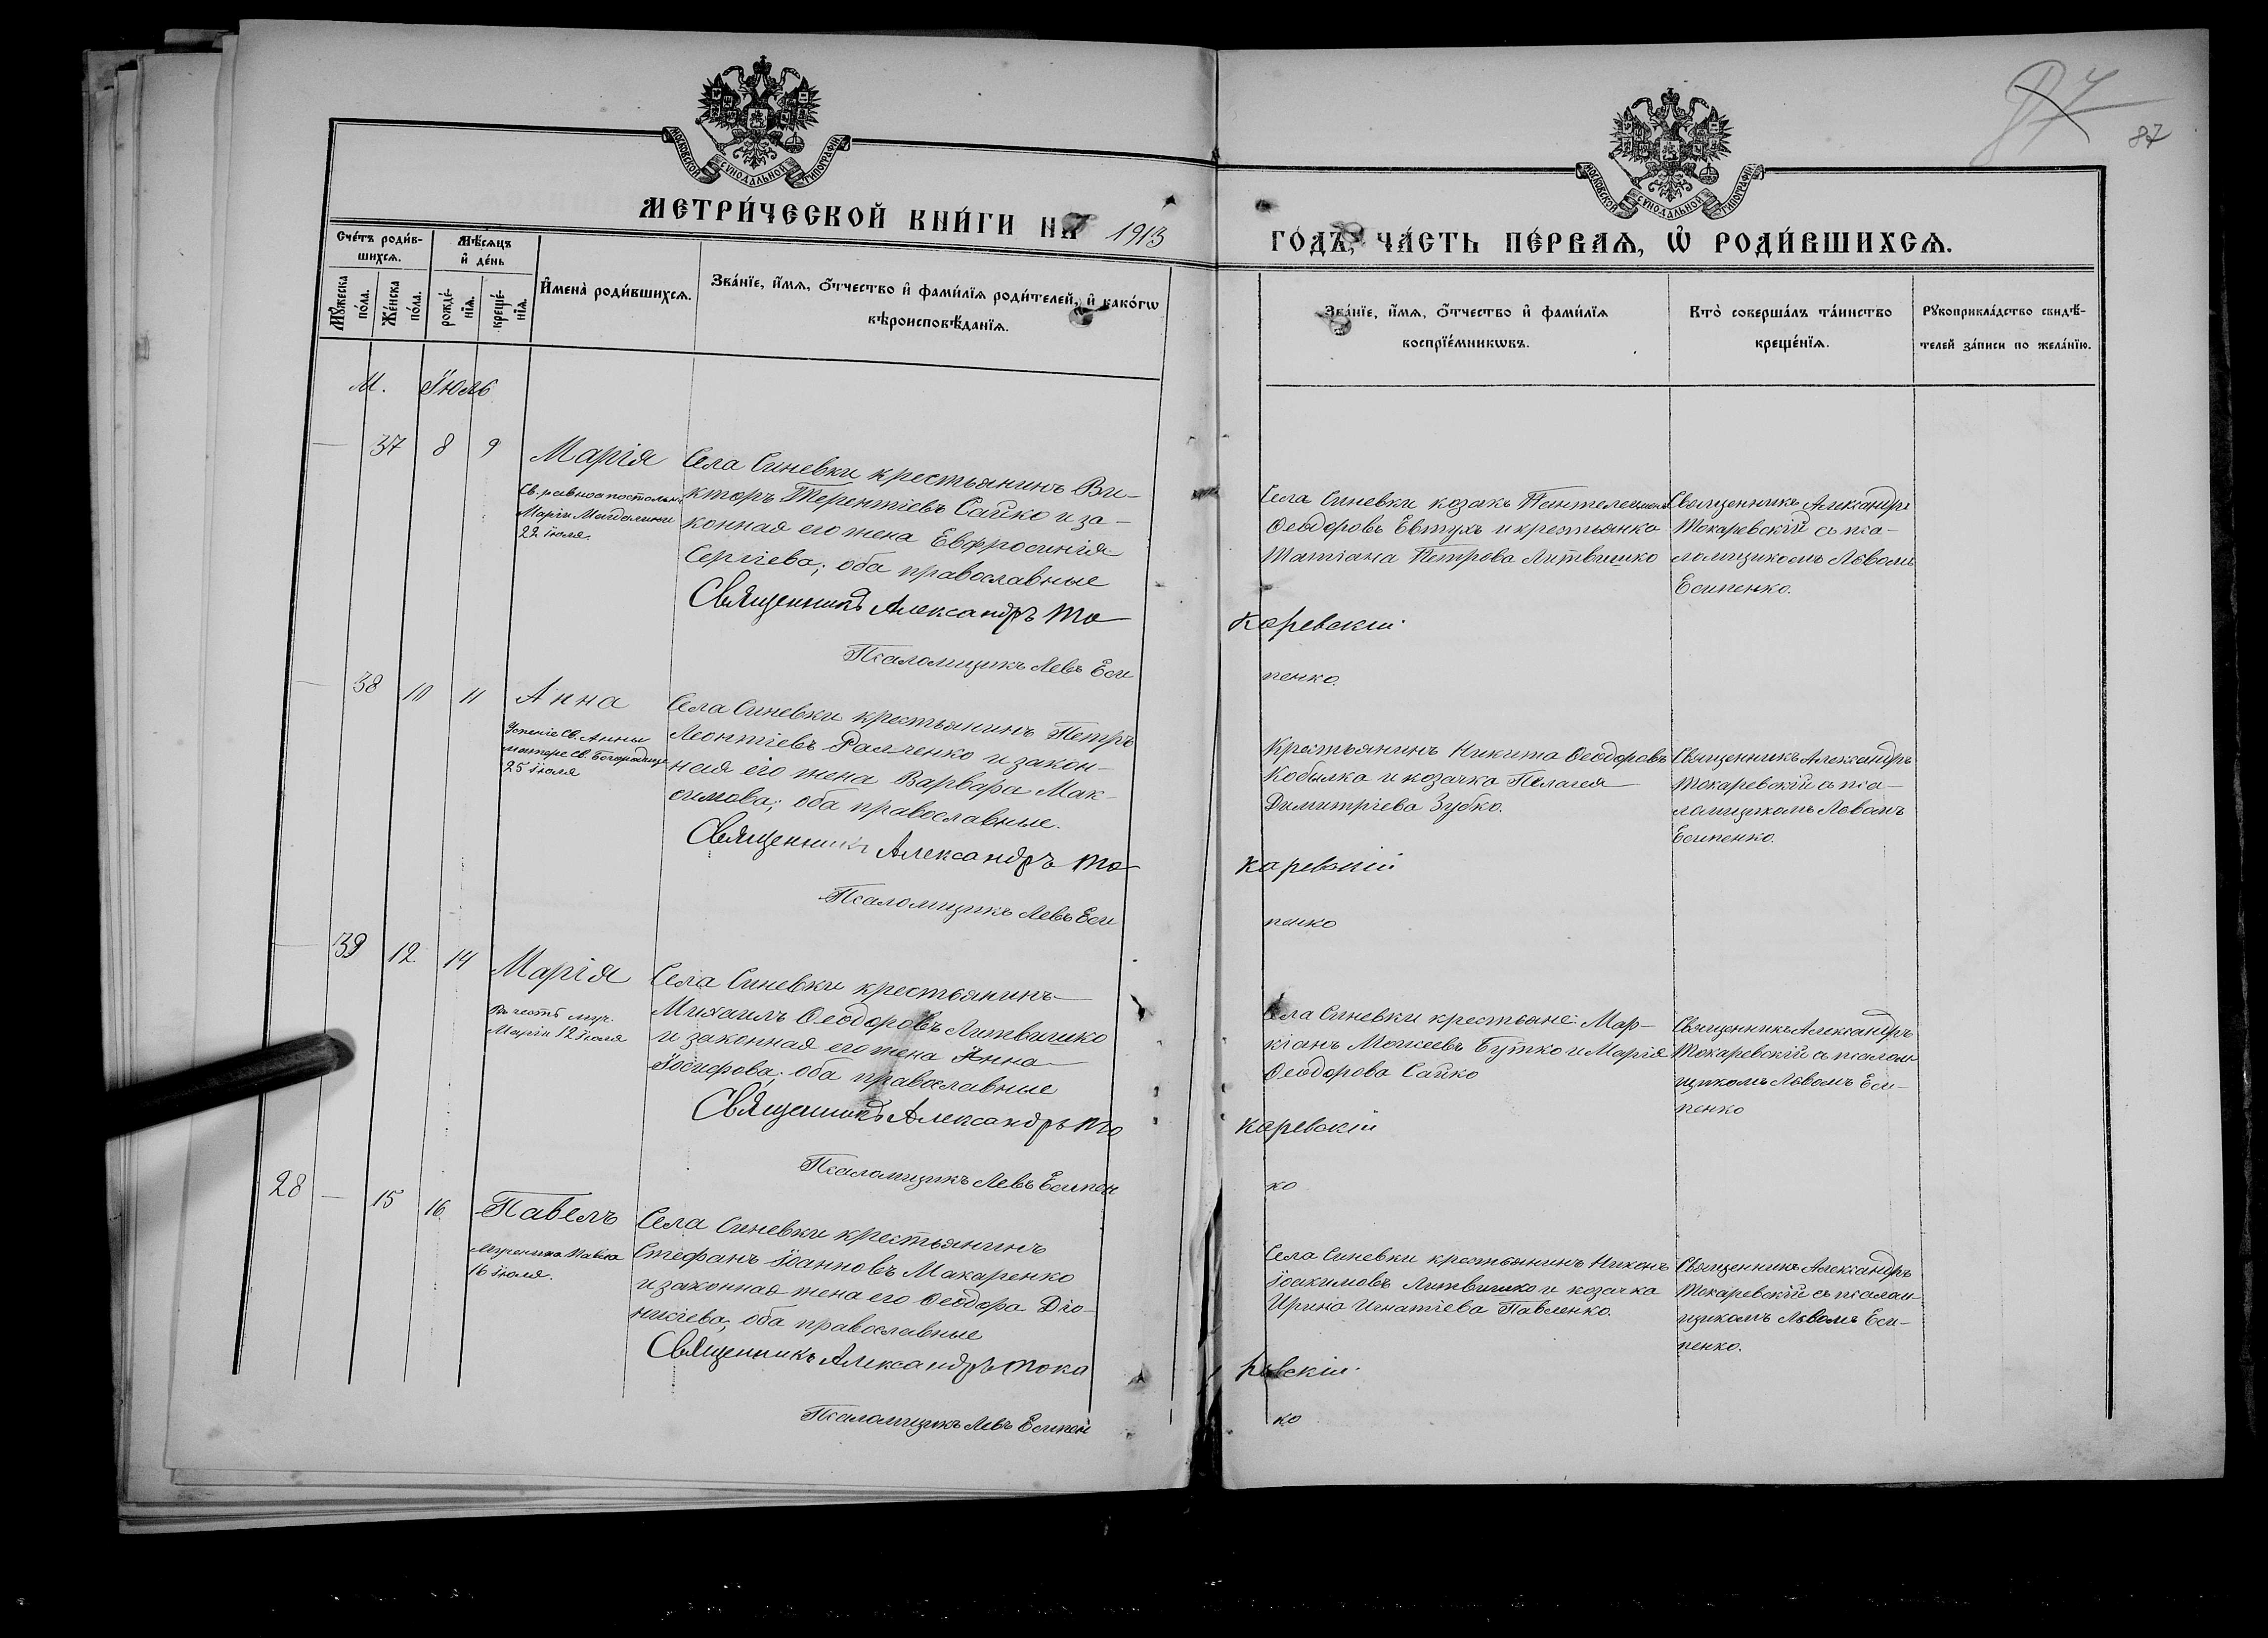 87
87
МОСКОВСКОЙ СѴНОДАЛЬНОЙ ТИПОГРАФІИ
МОСКОВСКОЙ СѴНОДАЛЬНОЙ ТИПОГРАФІИ
МЕТРИ́ЧЕСКОЙ КНИ́ГИ НА 1913 ГО́ДЪ, ЧА́СТЬ ПЕ́РВАѦ, Ѡ҆ РОДИ́ВШИХСѦ.
Сче́тъ роди́в-
шихсѧ.
Мѣ́сѧцъ
и҆ де́нь
Мꙋ́жеска
по́ла.
Же́нска
по́ла.
рожде́-
нїѧ.
креще́-
нїѧ.
И҆мена̀ роди́вшихсѧ.
Зва́нїе, и҆́мѧ, ѻ҆́тчество и҆ фами́лїѧ роди́телей, и҆ како́гѡ
вѣроисповѣ́данїѧ.
Зва́нїе, и҆́мѧ, ѻ҆́тчество и҆ фами́лїѧ
воспрїе́мникѡвъ.
Кто̀ соверша́лъ та́инство
креще́нїѧ.
Рꙋкоприкла́дство свидѣ́-
телей за́писи по жела́нїю.
М. Іюль
— 37 8 9 Марія
Св. равноапостольн.
Маріи Магдалины
22 іюля.
Села Синевки крестьянинъ Ви-
кторъ Терентіевъ Сайко и за-
конная его жена Евфросинія
Сергіева; оба православные
Села Синевки козакъ Пантелеимонъ
Ѳеодоровъ Евтухъ и крестьянка
Татіана Петрова Литвишко
Священникъ Александръ
Токаревскій съ пса-
ломщикомъ Львомъ
Есипенко.
Священникъ Александръ Токаревскій.
Псаломщикъ Левъ Есипенко.
— 38 10 11 Анна
Успеніе Св. Анны
матере Св. Богородицы
25 іюля
Села Синевки крестьянинъ Петръ
Леонтіевъ Радченко и закон-
ная его жена Варвара Мак-
симова; оба православные.
Крестьянинъ Никита Ѳеодоровъ
Кобылка и козачка Пелагея
Димитріева Зубко.
Священникъ Александръ
Токаревскій съ пса-
ломщикомъ Львомъ
Есипенко.
Священникъ Александръ Токаревскій
Псаломщикъ Левъ Есипенко
— 39 12 14 Марія
Въ честь муч.
Маріи 12 іюля
Села Синевки крестьянинъ
Михаилъ Ѳеодоровъ Литвишко
и законная его жена Анна
Іосифова; оба православные
Села Синевки крестьяне: Мар-
кіанъ Моисеевъ Бутко и Марія
Ѳеодорова Сайко
Священникъ Александръ
Токаревскій съ псалом-
щикомъ Львомъ Еси-
пенко
Священникъ Александръ Токаревскій
Псаломщикъ Левъ Есипенко
28 — 15 16 Павелъ
Мученика Павла
16 іюля.
Села Синевки крестьянинъ
Стефанъ Іоанновъ Макаренко
и законная жена его Ѳеодора Діо-
нисіева; оба православные
Села Синевки крестьянинъ Никонъ
Іоакимовъ Литвишко и козачка
Ирина Игнатіева Павленко.
Священникъ Александръ
Токаревскій съ псалом-
щикомъ Львомъ Еси-
пенко.
Священникъ Александръ Токаревскій.
Псаломщикъ Левъ Есипенко